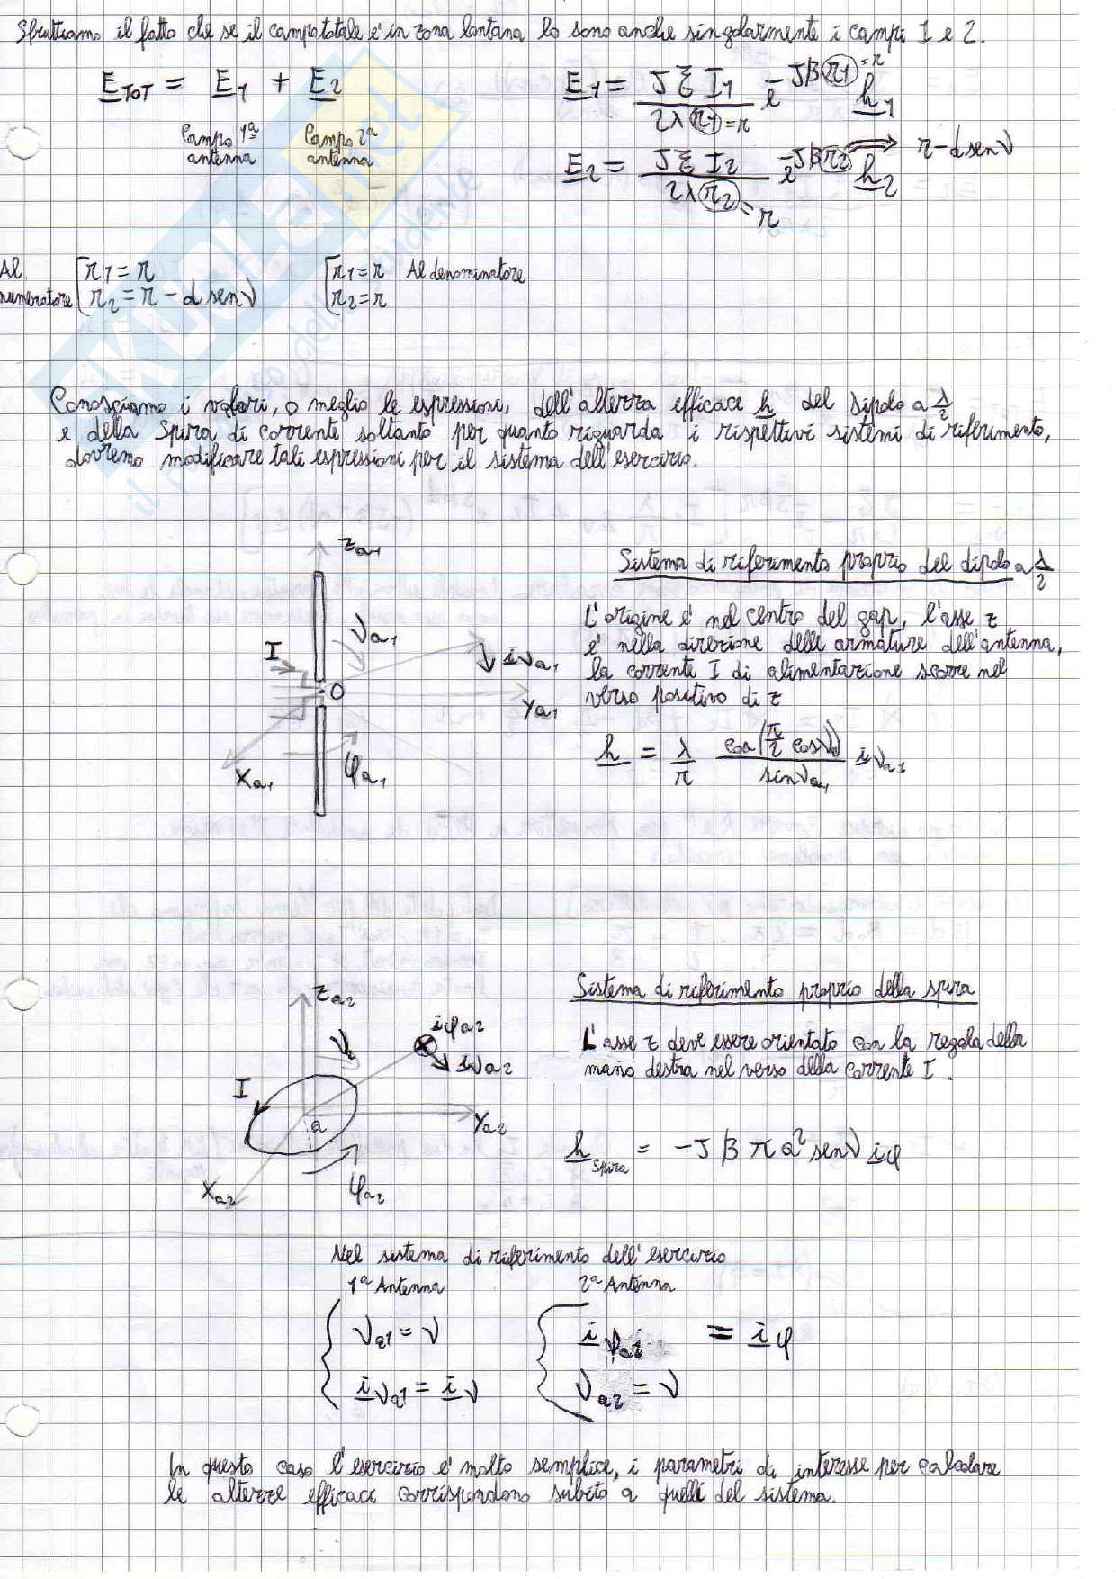 Sfruttiamo il fatto che se il campo totale e' in zona lontana lo sono anche singolarmente i campi 1 e 2.
E_TOT = E_1 + E_2
Campo 1ª antenna
Campo 2ª antenna
E_1 = Jξ I_1 / 2λ(r_1)=r e^-Jβ(r_1)=r h_1
E_2 = Jξ I_2 / 2λ(r_2)=r e^-Jβ(r_2) h_2 ⇒ r - d senν
Al numeratore [ r_1 = r
r_2 = r - d senν
[ r_1 = r Al denominatore
r_2 = r
Conosciamo i valori, o meglio le espressioni, dell'altezza efficace h del dipolo a λ/2
e della spira di corrente soltanto per quanto riguarda i rispettivi sistemi di riferimento,
dovremo modificare tali espressioni per il sistema dell'esercizio.
Z_a1
ν_a1
I
O
i_νa1
Y_a1
X_a1
φ_a1
Sistema di riferimento proprio del dipolo a λ/2
L'origine e' nel centro del gap, l'asse z
e' nella direzione delle armature dell'antenna,
la corrente I di alimentazione scorre nel
verso positivo di z
h = λ/π cos(π/2 cosν_a1)/senν_a1 i_νa1
Z_a2
ν_2
i_φa2
i_νa2
I
a
Y_a2
X_a2
φ_a2
Sistema di riferimento proprio della spira
L'asse z deve essere orientato con la regola della
mano destra nel verso della corrente I.
h_spira = -Jβπa² senν i_φ
Nel sistema di riferimento dell'esercizio
1ª Antenna
2ª Antenna
{ ν_a1 = ν
i_νa1 = i_ν
{ i_φa2 = i_φ
ν_a2 = ν
In questo caso l'esercizio e' molto semplice, i parametri di interesse per calcolare
le altezze efficaci corrispondono subito a quelli del sistema.